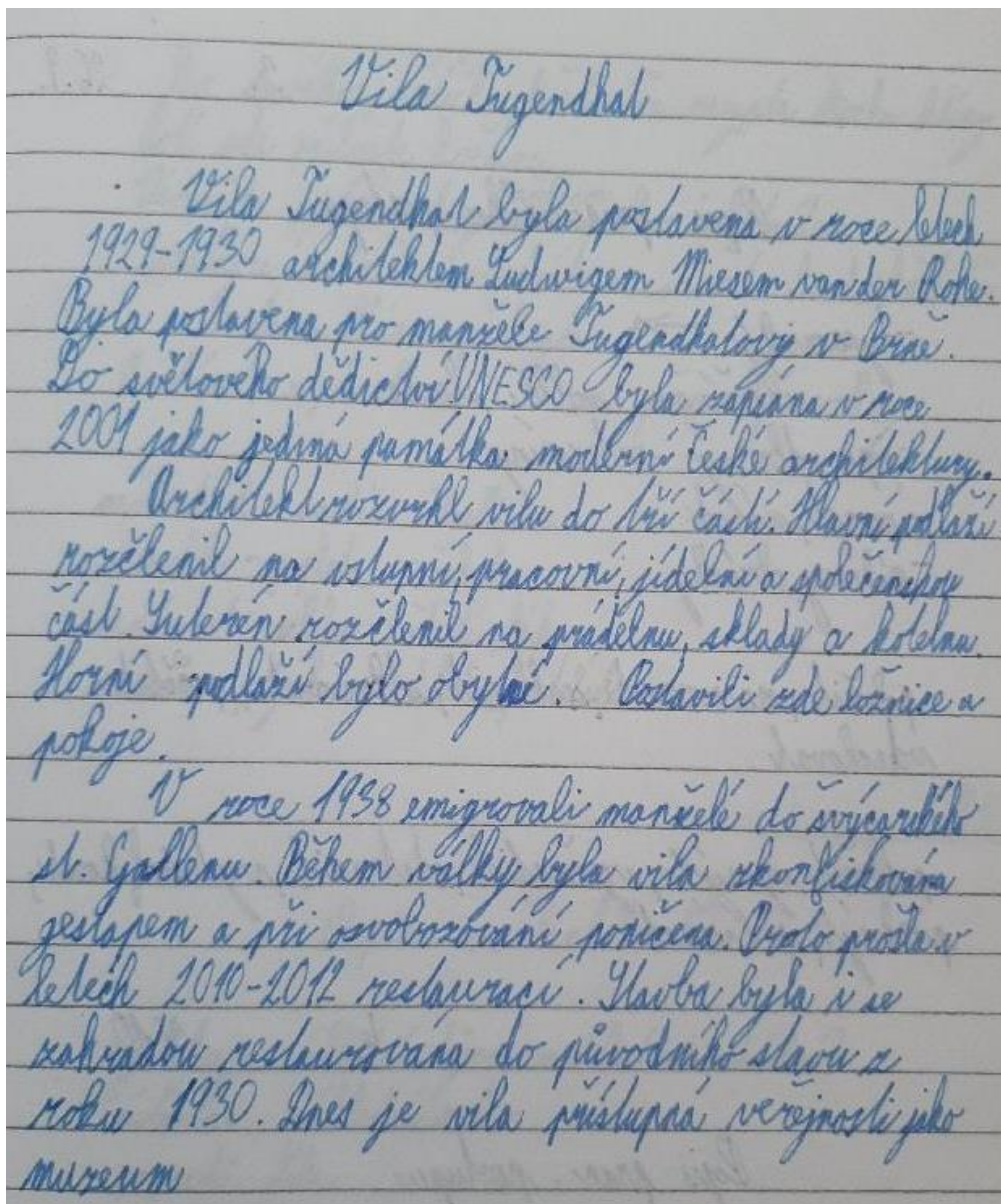 Vila Tugendhat
Vila Tugendhat byla postavena v roce letech
1929-1930 architektem Ludwigem Miesem van der Rohe.
Byla postavena pro manžele Tugendhatovy v Brně.
Do světového dědictví UNESCO byla zapsána v roce
2001 jako jediná památka moderní České architektury.
Architekt rozvrhl vilu do tří částí. Hlavní podlaží
rozčlenil na vstupní, pracovní, jídelní a společenskou
část. Suterén rozčlenil na prádelnu, sklady a kotelnu.
Horní podlaží bylo obytné. Postavili zde ložnice a
pokoje.
V roce 1938 emigrovali manželé do švýcarského
st. Gallenu. Během války byla vila zkonfiskována
gestapem a při osvobozování poničena. Proto prošla v
letech 2010-2012 restaurací. Stavba byla i se
zahradou restaurována do původního stavu z
roku 1930. Dnes je vila přístupná veřejnosti jako
muzeum